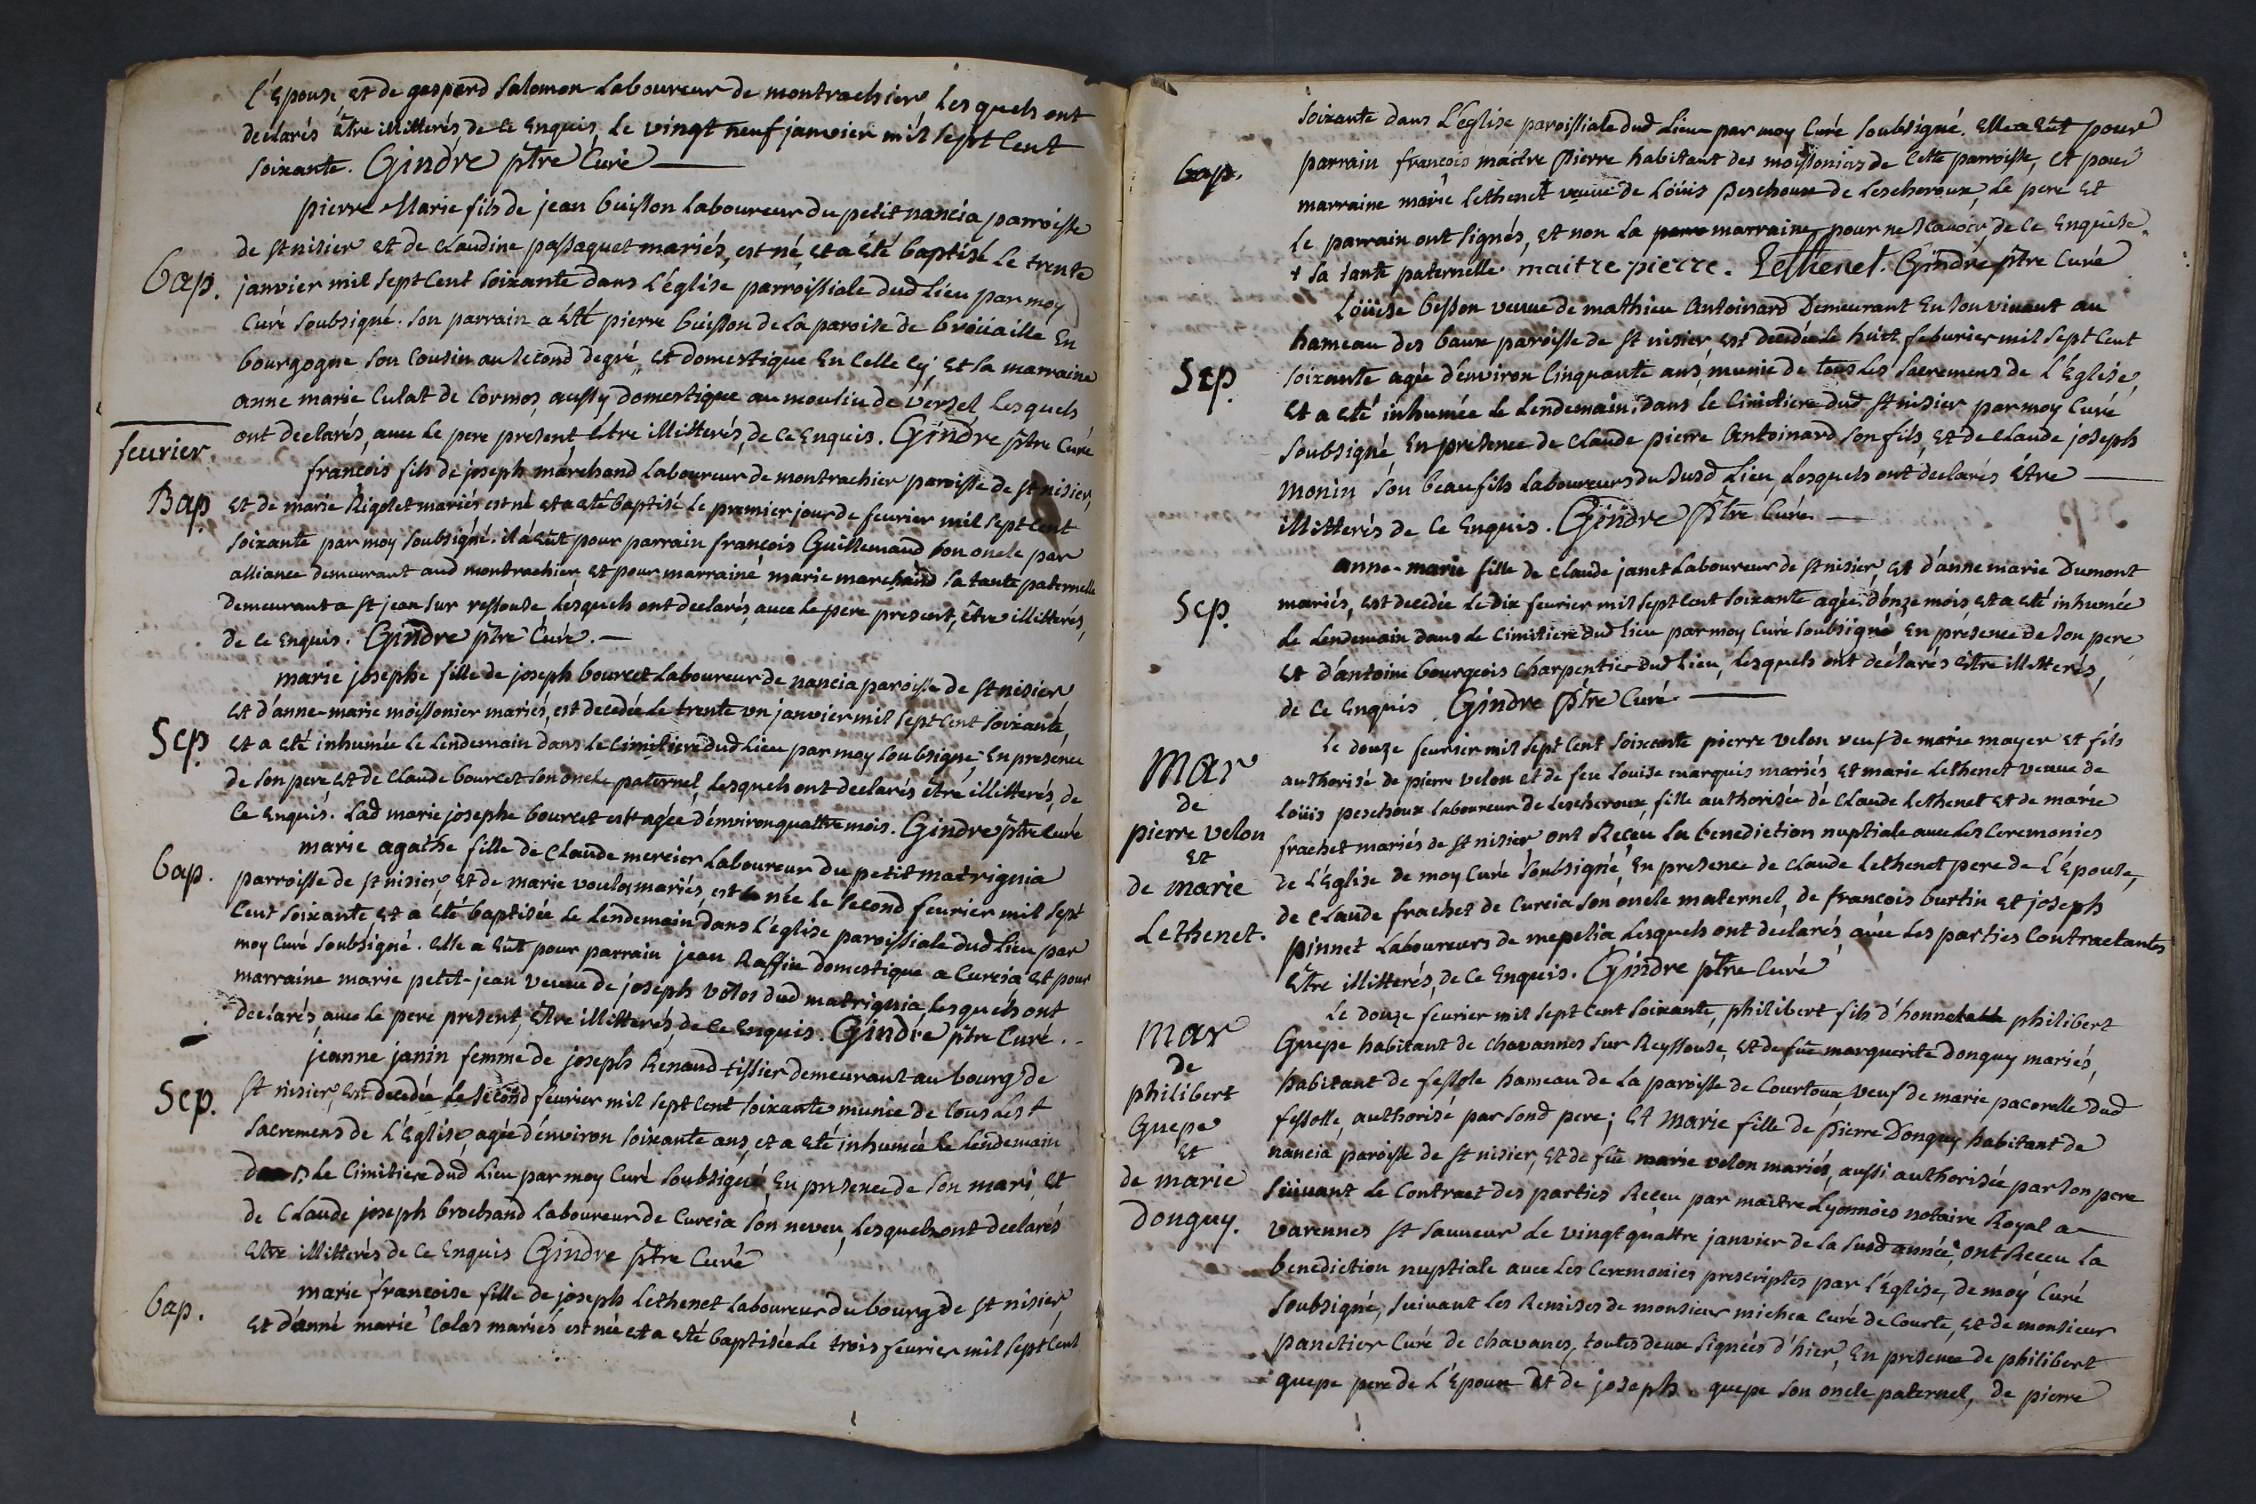 l'Epouse et de gaspard Salomon Laboureur de montrachier Lesquels ont
declarés être illitterés, de ce Enquis, Le vingt neuf janvier mil sept Cent
soixante. Gindre ptre Curé
pierre Marie fils de jean buisson Laboureur du petit nancia parroisse
Bap.
de st nisier et de claudine passaquet mariés, est né, et a été baptisé Le trente
janvier mil sept Cent soixante dans L'église parroissiale dud Lieu par moy
Curé soubsigné. son parrain a été pierre buisson de La paroise de broüaille En
bourgogne son Cousin au second degré, et domestique En Celle Cÿ, et sa marraine
anne marie Culat de Cormos, aussy domestique au moulin de versel Lesquels
ont declarés, avec Le pere present Être illitterés, de ce Enquis. Gindre ptre Curé
fevrier.
françois fils de joseph marchand Laboureur de montrachier paroisse de st nisier,
Bap
et de marie Rigolet mariés est né et a été baptisé Le premier jour de fevrier mil sept Cent
soixante par moy soubsigné. il a eût pour parrain françois Guillemaud son oncle par
alliance demeurant aud montrachier, et pour marraine marie marchand sa tante paternelle
demeurant a st jean sur ressouse Lesquels ont declarés, avec Le pere present, être illitterés,
de ce Enquis. Gindre ptre Curé.
marie josephe fille de joseph bourcet Laboureur de nancia paroisse de st nisier
et d'anne-marie moissonier mariés, est decedée Le trente un janvier mil sept Cent soixante,
Sep
et a été inhumée Le Lendemain dans Le Cimitiere dud Lieu par moy soubsigné, En presence
de son pere, et de claude bourcet son oncle paternel, Lesquels ont declarés être illitterés, de
Ce Enquis. Lad marie josephe bourcet est agée d'environ quattre mois. Gindre ptre Curé
marie agathe fille de Claude mercier Laboureur du petit matrignia
Bap.
parroisse de st nisier, et de marie voulos mariés, est née Le second fevrier mil sept
Cent soixante et a été baptisée Le Lendemain dans L'église paroissiale dud Lieu par
moy Curé soubsigné. elle a eût pour parrain jean Raffin domestique a Curcia, et pour
marraine marie petit-jean veuve de joseph volos dud matrignia, Lesquels ont
declarés, avec Le pere present, être illitterés, de Ce Enquis. Gindre ptre Curé.
jeanne janin femme de joseph Renaud tissier demeurant au bourg de
Sep.
st nisier, est decedée Le second fevrier mil sept Cent soixante munie de tous Les
sacremens de L'Eglise, agée d'environ soixante ans, et a été inhumée Le Lendemain
dans Le Cimitiere dud Lieu par moy Curé soubsigné En presence de son mari et
de Claude joseph brochand Laboureur de Curcia son neveu, Lesquels ont declarés
Etre illitterés de ce Enquis Gindre ptre Curé
Bap.
marie françoise fille de joseph Lethenet Laboureur du bourg de st nisier,
et d'anne marie Colas mariés est née et a été baptisée Le trois fevrier mil sept Cent
soixante dans L'église paroissiale dud Lieu par moy Curé soubsigné. Elle a Eût pour
Bap.
parrain françois maitre pierre habitant des moissonias de Cette parroisse, et pour
marraine marie Lethenet veuve de Loüis peschoux de Lescheroux, Le pere et
Le parrain ont signés, et non La marraine pour ne scavoir de ce Enquise.
+ sa tante paternelle maitre pierre. Lethenet. Gindre ptre Curé
Loüise besson veuve de mathieu Antoinard Demeurant En son vivant au
hameau des baux paroisse de st nisier, est decedée Le huit feburier mil sept Cent
Sep.
soixante agée d'environ Cinquante ans, munie de tous Les sacremens de L'Eglise,
et a eté inhumée Le Lendemain, dans Le Cimitiere dud st nisier par moy Curé
soubsigné En presence de claude pierre Antoinard son fils, et de claude joseph
Monin son beau fils Laboureurs du susd Lieu, Lesquels ont declarés être
illitterés de Ce Enquis. Gindre ptre Curé
anne-marie fille de claude janet Laboureur de st nisier, et d'anne marie Dumont
Sep.
mariés, est decedée Le dix fevrier mil sept Cent soixante agée d'onze mois et a eté inhumée
Le Lendemain dans Le Cimitiere dud Lieu par moy Curé soubsigné En presence de son pere
et d'antoine bourgeois Charpentier dud Lieu, Lesquels ont declarés être illitterés,
de Ce Enquis. Gindre ptre Curé
Le douze fevrier mil sept Cent soixante pierre velon veuf de marie mayer et fils
Mar
de
pierre velon
et
de marie
Lethenet.
authorisé de pierre velon et de feu Louise marquis mariés, et marie Lethenet veuve de
Loüis peschoux Laboureur de Lescheroux, fille authorisée de Claude Lethenet et de marie
frachet mariés de st nisier, ont Receu La benediction nuptiale avec Les Ceremonies
de L'Eglise de moy Curé soubsigné, En presence de claude Lethenet pere de L'Epouse,
de claude frachet de Curcia son oncle maternel, de françois burtin et joseph
pinnet Laboureurs de mepelia Lesquels ont declarés, avec Les parties Contractantes
Etre illitterés, de Ce Enquis. Gindre ptre Curé
Le douze fevrier mil sept Cent soixante, philibert fils d'honnetable philibert
Mar
de
philibert
Guepe
et
de marie
Donguy.
Guepe habitant de chavannes sur Reyssouse, et de fûe marguerite donguy mariés,
habitant de fessole hameau de La paroisse de Courtoux, veuf de marie pacorelle dud
fessolle, authorisé par sond pere; et Marie fille de pierre Donguy habitant de
nancia paroisse de st nisier, et de fûe marie velon mariés, aussi authorisée par son pere
suivant Le Contract des parties Receu par maitre Lyonnois notaire Royal a
varennes st sauveur Le vingt quattre janvier de La susd année, ont Receu La
benediction nuptiale avec Les Ceremonies prescriptes par L'Eglise, de moy Curé
soubsigné, suivant Les Remises de monsieur michea Curé de Courte, et de monsieur
panetier Curé de chavanes, toutes deux signées d'hier, En presence de philibert
guepe pere de L'Epoux et de joseph guepe son oncle paternel, de pierre